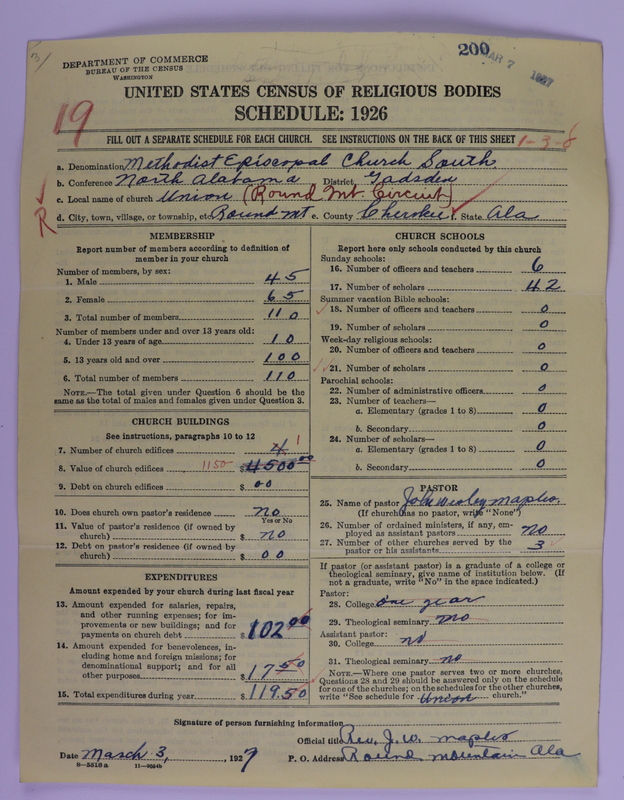 200
MAR 7 1927
DEPARTMENT OF COMMERCE
BUREAU OF THE CENSUS
WASHINGTON
UNITED STATES CENSUS OF RELIGIOUS BODIES
SCHEDULE: 1926
19
FILL OUT A SEPARATE SCHEDULE FOR EACH CHURCH. SEE INSTRUCTIONS ON THE BACK OF THIS SHEET
1-3-8
a. Denomination Methodist Episcopal Church South
b. Conference North Alabama District Gadsden
c. Local name of church Union (Round Mt. Circuit)
R
d. City, town, village, or township, etc. Round Mt e. County Cherokee f. State Ala
MEMBERSHIP
Report number of members according to definition of
member in your church
Number of members, by sex:
1. Male 45
2. Female 65
3. Total number of members 110
Number of members under and over 13 years old:
4. Under 13 years of age 10
5. 13 years old and over 100
6. Total number of members 110
NOTE.—The total given under Question 6 should be
same as the total of males and females given under Question 3.
CHURCH BUILDINGS
See instructions, paragraphs 10 to 12
7. Number of church edifices 4 1
8. Value of church edifices 1150 $4500 00
9. Debt on church edifices $ 00
10. Does church own pastor's residence no
Yes or No
11. Value of pastor's residence (if owned by
church) $ no
12. Debt on pastor's residence (if owned by
church) $ 00
EXPENDITURES
Amount expended by your church during last fiscal year
13. Amount expended for salaries, repairs,
and other running expenses; for im-
provements or new buildings; and for
payments on church debt $ 102 00
14. Amount expended for benevolences, in-
cluding home and foreign missions; for
denominational support; and for all
other purposes $ 17 50
15. Total expenditures during year $ 119.50
CHURCH SCHOOLS
Report here only schools conducted by this church
Sunday schools:
16. Number of officers and teachers 6
17. Number of scholars 42
Summer vacation Bible schools:
18. Number of officers and teachers 0
19. Number of scholars 0
Week-day religious schools:
20. Number of officers and teachers 0
21. Number of scholars 0
Parochial schools:
22. Number of administrative officers 0
23. Number of teachers—
a. Elementary (grades 1 to 8) 0
b. Secondary 0
24. Number of scholars—
a. Elementary (grades 1 to 8) 0
b. Secondary 0
PASTOR
25. Name of pastor John Wesley Maples
(If church has no pastor, write "None")
26. Number of ordained ministers, if any, em-
ployed as assistant pastors no
27. Number of other churches served by the
pastor or his assistants 3
If pastor (or assistant pastor) is a graduate of a college or
theological seminary, give name of institution below. (If
not a graduate, write "No" in the space indicated.)
Pastor:
28. College one year
29. Theological seminary no
Assistant pastor:
30. College no
31. Theological seminary no
NOTE.—Where one pastor serves two or more churches,
Questions 28 and 29 should be answered only on the schedule
for one of the churches; on the schedules for the other churches,
write "See schedule for Union church."
Signature of person furnishing information
Official title Rev. J. W. Maples
Date March 3, 1927 P. O. Address Round Mountain Ala
8—5518 a 11—9024b